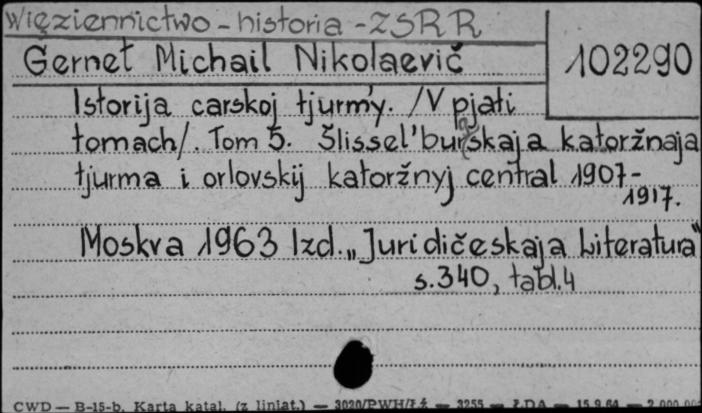 Więziennictwo - historia - ZSRR
Gernet Michail Nikolaevič
102290
Istorija carskoj tjur'my. /V pjati
tomach/. Tom 5. Šlissel'burgskaja katoržnaja
tjurma i orlovskij katoržnyj central 1907-
1917.
Moskva 1963 Izd. „Juridičeskaja Literatura"
s.340, tabl.4
CWD — B-15-b. Karta katal. (z liniat.) — 3020/PWH/Łź — 3255 — ŁDA — 15.9.64 — 2.000.000